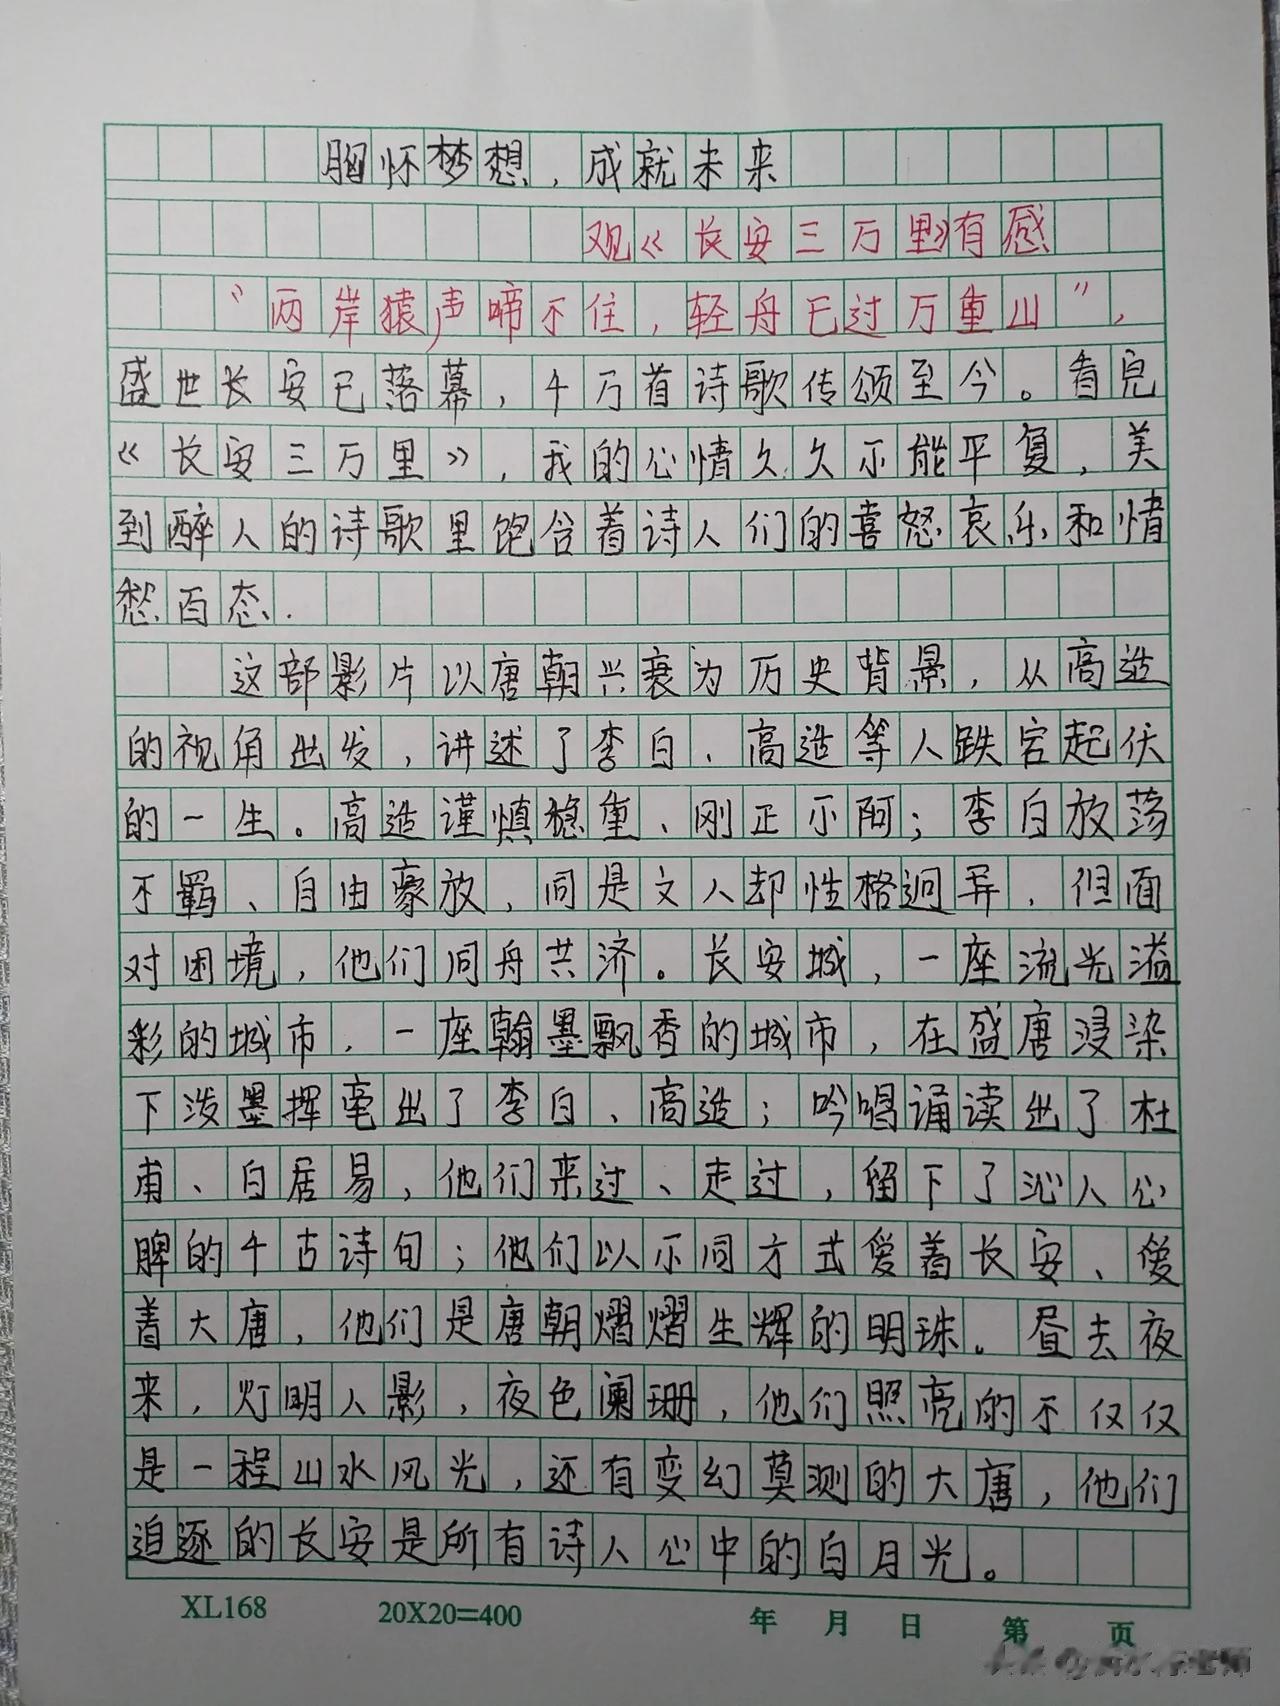 胸怀梦想，成就未来
观《长安三万里》有感
“两岸猿声啼不住，轻舟已过万重山”，
盛世长安已落幕，千万首诗歌传颂至今。看完
《长安三万里》，我的心情久久不能平复，美
到醉人的诗歌里饱含着诗人们的喜怒哀乐和情
愁百态.
这部影片以唐朝兴衰为历史背景，从高适
的视角出发，讲述了李白、高适等人跌宕起伏
的一生。高适谨慎稳重、刚正不阿；李白放荡
不羁、自由豪放，同是文人却性格迥异，但面
对困境，他们同舟共济。长安城，一座流光溢
彩的城市，一座翰墨飘香的城市，在盛唐浸染
下泼墨挥毫出了李白、高适；吟唱诵读出了杜
甫、白居易，他们来过、走过，留下了沁人心
脾的千古诗句；他们以不同方式爱着长安、爱
着大唐，他们是唐朝熠熠生辉的明珠。昼去夜
来，灯明人影，夜色阑珊，他们照亮的不仅仅
是一程山水风光，还有变幻莫测的大唐，他们
追逐的长安是所有诗人心中的白月光。
XL168 20X20=400 年 月 日 第 页